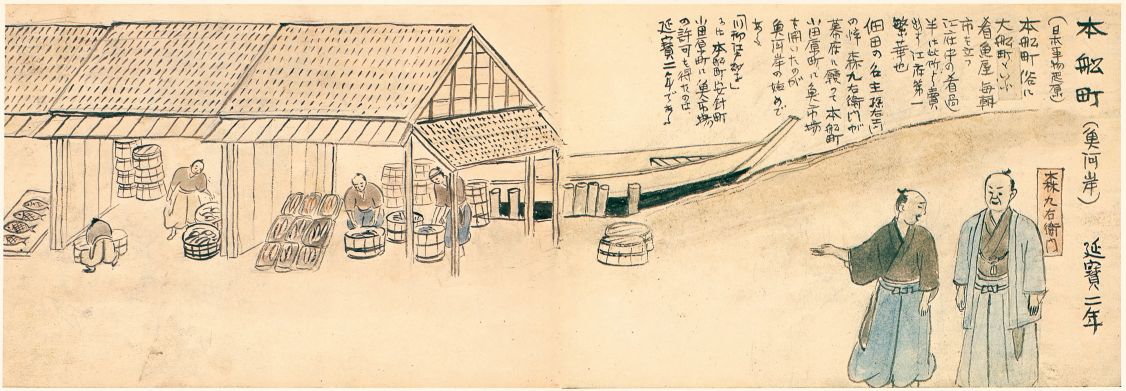 本舩町（魚河岸）　延寶二年
（日本事物起原）
本舩町俗に
大舩町といふ
肴魚屋毎朝
市を立つ
江在中の肴過
半は此所より賣
出す江府第一
繁華也
佃田の名主孫右エ門
の悴森九右衛門が
幕府に願って本舩町
小田原町に魚市場
を開いたのが
魚河岸の始めで
ある
「川柳江戸砂子」
には本舩町安針町
小田原町に魚市場
の許可を得たのは
延寶二年である
森九右衛門